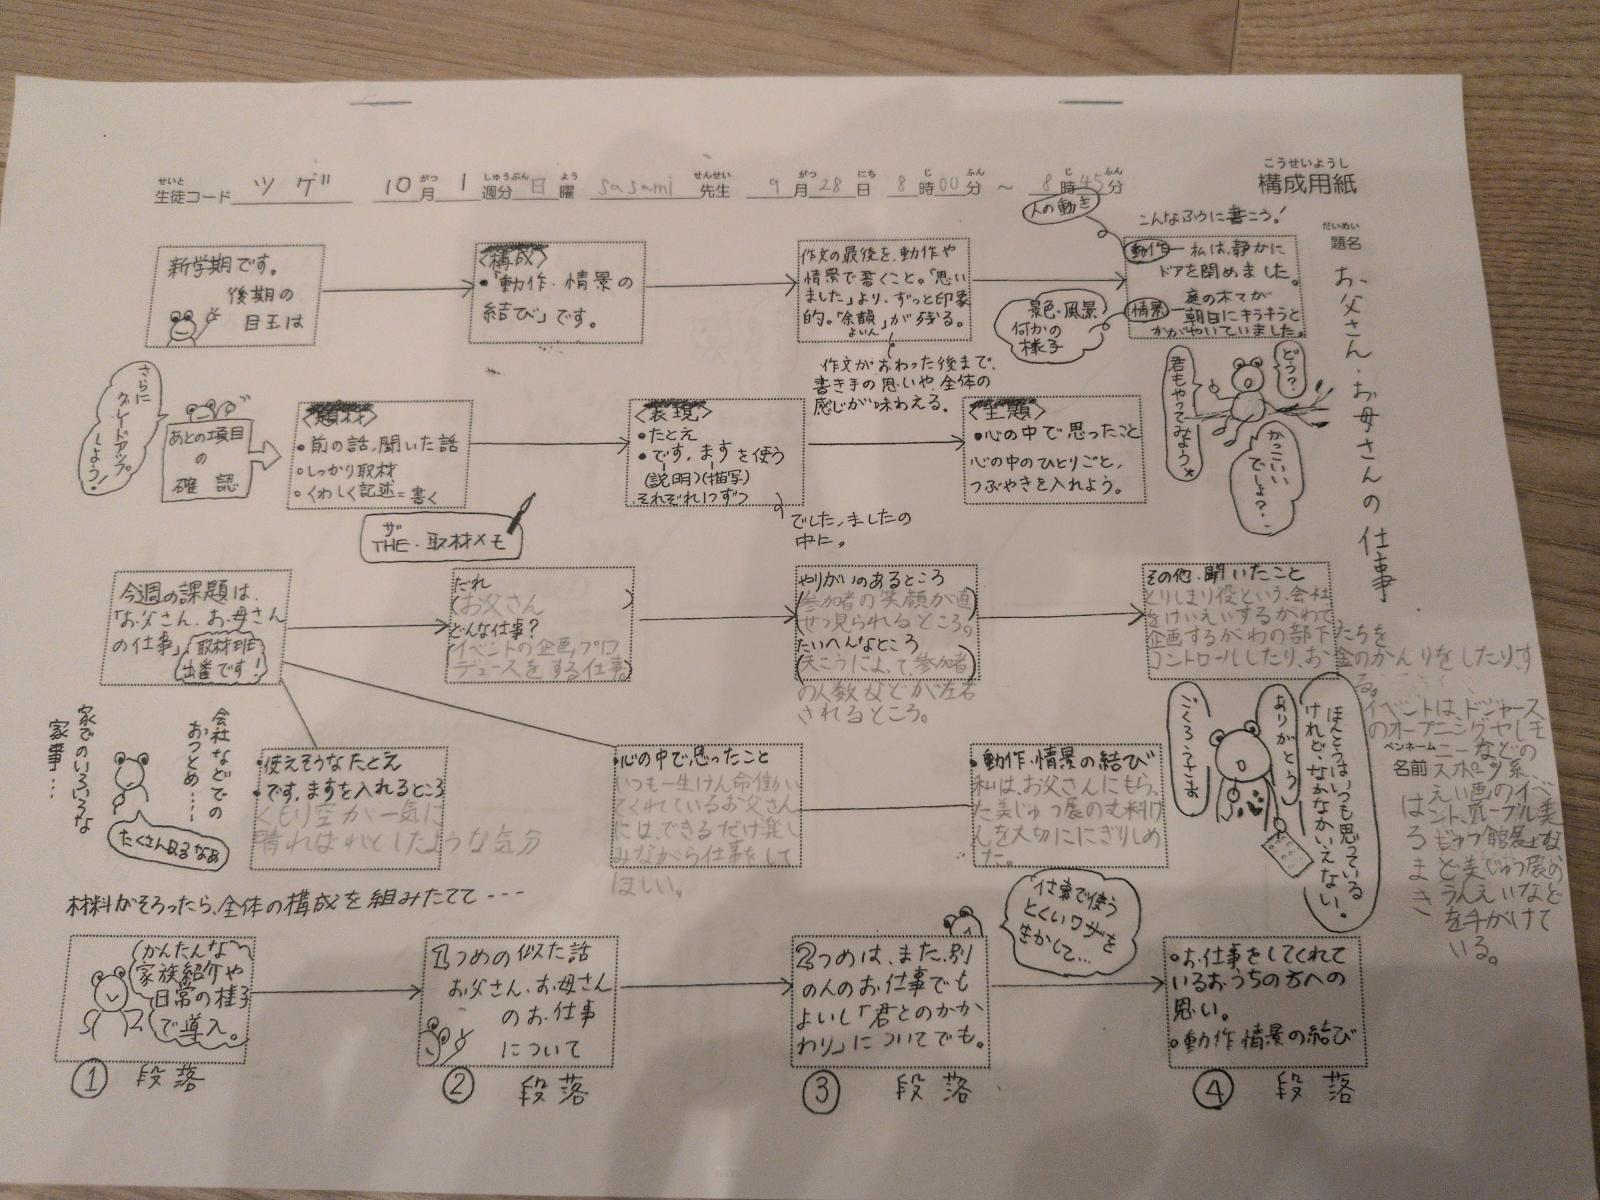 こうせいようし
構成用紙
せいと がつ しゅうぶん よう せんせい がつ にち じ ふん じ ふん
生徒コード ツゲ 10月1週分 日曜 sasami先生 9月28日 8時00分 ~ 8時45分
だいめい
題名
お父さん・お母さんの仕事
新学期です。
後期の
目玉は
<構成>
・「動作・情景の
結び」です。
作文の最後を、動作や
情景で書くこと。「思い
ました」より、ずっと印象
的。「余韻」が残る。
よいん
作文がおわった後まで、
書き手の思いや、全体の
感じが味わえる。
人の動き
こんなふうに書こう!
動作─私は、静かに
ドアを閉めました。
情景─庭の木々が
朝日にキラキラと
かがやいていました。
景色・風景
何かの
様子
どう?
君もやってみよう
かっこいい
でしょ?
さらに
グレードアップ
しよう!
あとの項目
の
確認
<題材>
・前の話、聞いた話
・しっかり取材
・くわしく記述=書く
ザ
THE・取材メモ
<表現>
・たとえ
・です、ますを使う
(説明)(描写)
それぞれ1つずつ
でした、ましたの
中に。
<主題>
・心の中で思ったこと
心の中のひとりごと、
つぶやきを入れよう。
今週の課題は、
「お父さん、お母さん
の仕事」
取材班
出番です!
だれ
(お父さん)
どんな仕事?
イベントの企画、プロ
デュースをする仕事
やりがいのあるところ
参加者の笑顔が直
せつ見られるところ。
たいへんなところ
天こうによって参加者
の人数などが左右
されるところ。
その他、聞いたこと
とりしまり役という、会社
をけいえいするがわで
企画するがわの部下たちを
コントロールしたり、お金のかんりをしたりす
る。
イベントは、ドジャース
のオープニングセレモ
ニーなどの
スポーツ系、
えい画のイベ
ント、ルーブル美
じゅつ館展な
ど美じゅつ展の
うんえいなど
を手がけて
いる。
ペンネーム
名前
はるまき
家でのいろいろな
家事…
会社などでの
おつとめ……
たくさんあるなあ
・使えそうなたとえ
・です、ますを入れるところ
くもり空が一気に
晴ればれとしたような気分
・心の中で思ったこと
いつも一生けん命働い
てくれているお父さん
には、できるだけ楽し
みながら仕事をして
ほしい。
・動作・情景の結び
私は、お父さんにもらっ
た美じゅつ展の
んを大切ににぎりしめ
た。
ごくろうさま
ありがとう
ほんとうは、いつも思っている
けれど、なかなかいえない。
材料がそろったら、全体の構成を組みたてて---
かんたんな
家族紹介や
日常の様子
で導入。
① 段落
1つめの似た話
お父さん、お母さん
のお仕事
について
② 段落
2つめは、また、別
の人のお仕事でも
よいし「君とのかか
わり」についてでも。
③ 段落
仕事で使う
とくいワザを
生かして…
・お仕事をしてくれて
いるおうちの方への
思い。
・動作、情景の結び
④ 段落